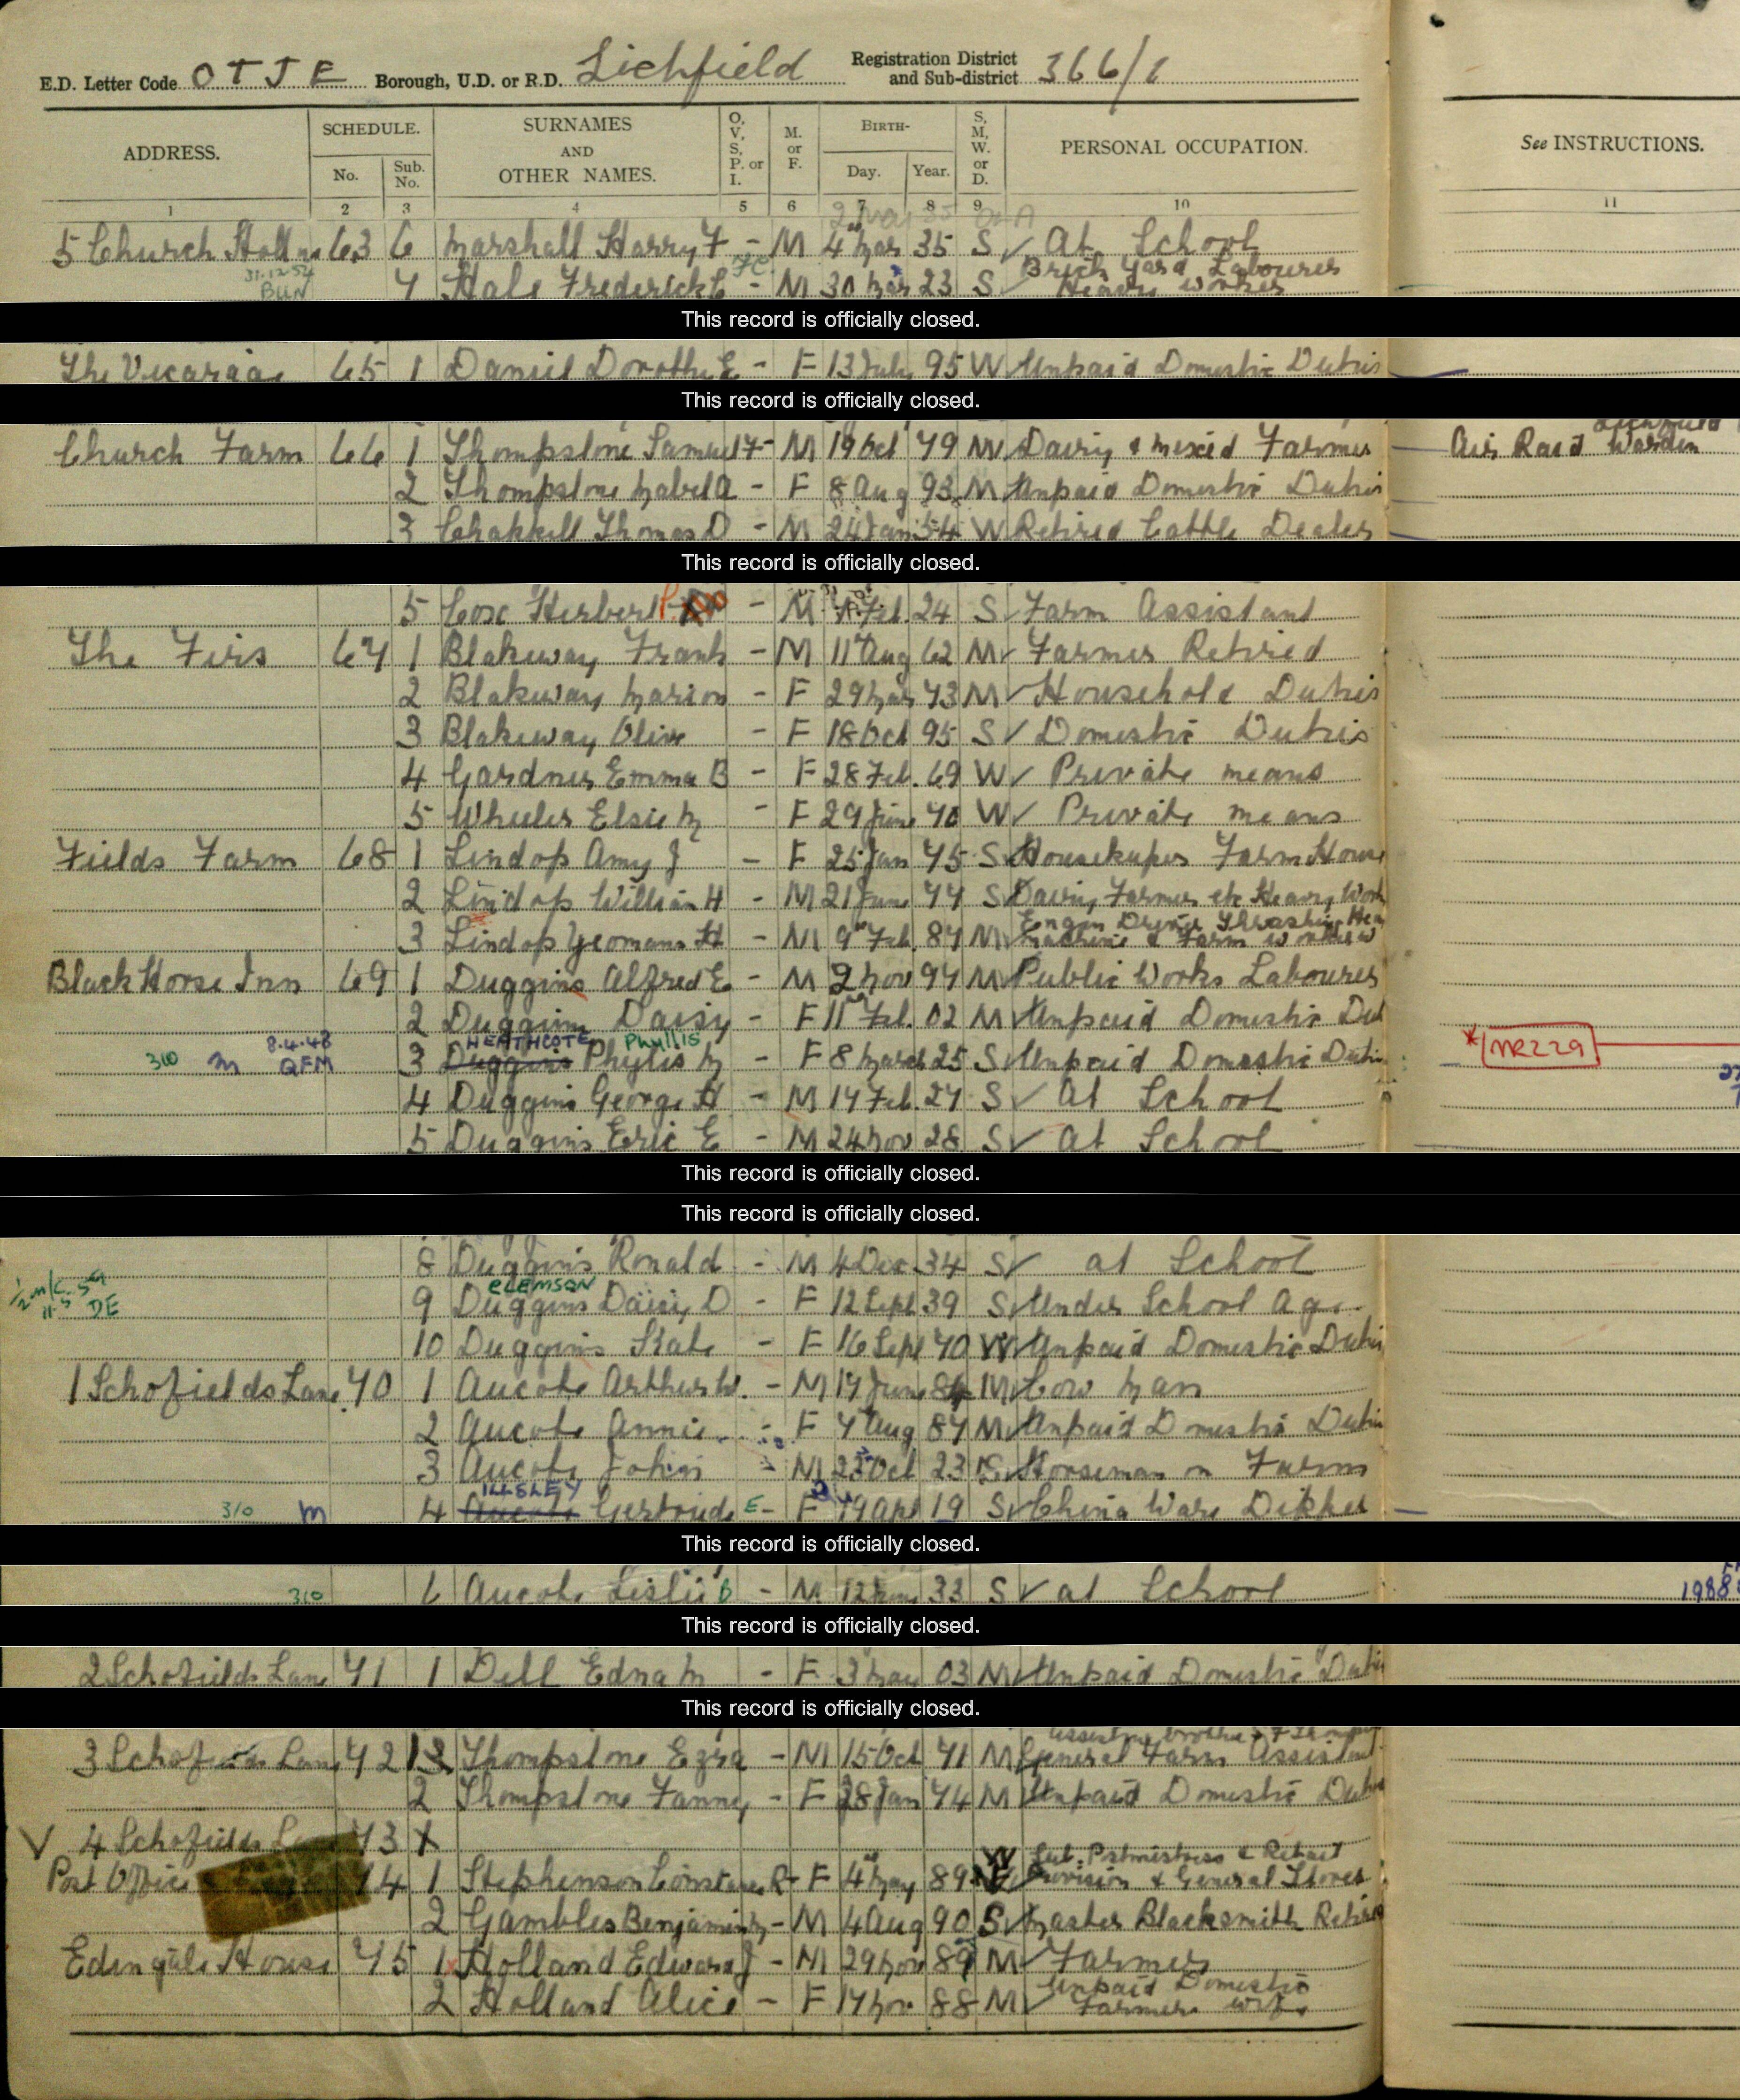 E.D. Letter Code OTJE Borough, U.D. or R.D. Lichfield Registration District and Sub-district 366/1
ADDRESS. SCHEDULE. No. Sub. No. SURNAMES AND OTHER NAMES. O, V, S, P. or I. M. or F. BIRTH- Day. Year. S, M, W. or D. PERSONAL OCCUPATION. See INSTRUCTIONS.
1 2 3 4 5 6 7 8 9 10 11
5 Church 63 6 Marshall Harry F - M 4 Mar 35 S At School
31.12.54 BUN 7 Hale Frederick E - M 30 Mar 23 S Brick Yard Labourer Heavy Worker
This record is officially closed.
The Vicarage 65 1 Daniel Dorothy E - F 13 July 95 W Unpaid Domestic Duties
This record is officially closed.
Church Farm 66 1 Thompstone Samuel F - M 19 Oct 79 M Dairy & Mixed Farmer Air Raid Warden
2 Thompstone Mabel A - F 8 Aug 93 M Unpaid Domestic Duties
3 Thomas D - M 24 Jan 54 W Retired Cattle Dealer
This record is officially closed.
5 Cox Herbert - M Feb 24 S Farm Assistant
The Firs 67 1 Blakeway Frank - M 11 Aug 62 M Farmer Retired
2 Blakeway Marion - F 29 Mar 73 M Household Duties
3 Blakeway Olive - F 18 Oct 95 S Domestic Duties
4 Gardner Emma B - F 28 Feb. 69 W Private means
5 Wheeler Elsie M - F 29 June 70 W Private means
Fields Farm 68 1 Lindop Amy J - F 25 Jan 75 S Housekeeper Farm House
2 Lindop William H - M 21 June 77 S Dairy Farmer etc Heavy Work
3 Lindop Yeomans H - M 9 Feb 87 M Engin Driver Thrashing Machine & Farm worker Hea
Black Horse Inn 69 1 Duggins Alfred E - M 2 Nov 97 M Public Works Labourer
2 Duggins Daisy - F 11 Feb. 02 M Unpaid Domestic Dut
310 m 8.4.48 QFM 3 Duggins HEATHCOTE Phylis Phyllis M - F 8 March 25 S Unpaid Domestic Duties * NR229
4 Duggins George H - M 17 Feb. 27 S At School
5 Duggins Eric E - M 24 Nov 28 S At School
This record is officially closed.
This record is officially closed.
8 Duggins Ronald - M 4 Dec 34 S at School
DE 9 Duggins CLEMSON Daisy D - F 12 Sept 39 S Under School Age
10 Duggins Kate - F 16 Sept 70 W Unpaid Domestic Duties
1 Schofields Lane 70 1 Aucote Arthur W. - M 17 June 84 M Cow Man
2 Aucote Annie - F 7 Aug 87 M Unpaid Domestic Duties
3 Aucote John - M 23 Oct 23 S Horseman on Farm
310 m 4 Aucote ILLSLEY Gertrude E - F 19 Apr 19 S China Ware Dipper
This record is officially closed.
310 6 Aucote Leslie B - M 12 33 S at School 1988
This record is officially closed.
2 Schofields Lane 71 1 Dell Edna M - F 3 May 03 M Unpaid Domestic Duties
This record is officially closed.
3 Schofields Lane 72 1 Thompstone Ezra - M 15 Oct 71 M General Farm Assistant
2 Thompstone Fanny - F 28 Jan 74 M Unpaid Domestic Duties
V 4 Schofields 73 X
Post Office 74 1 Stephenson Constance R - F 4 May 89 W Sub. Postmistress & Retail Provision & General Stores
2 Gambles Benjamin - M 4 Aug 90 S Master Blacksmith Retired
Edingale House 75 1 Holland Edward J - M 29 Nov 89 M Farmer
2 Holland Alice - F 17 Nov 88 M Unpaid Domestic Farmers Wife